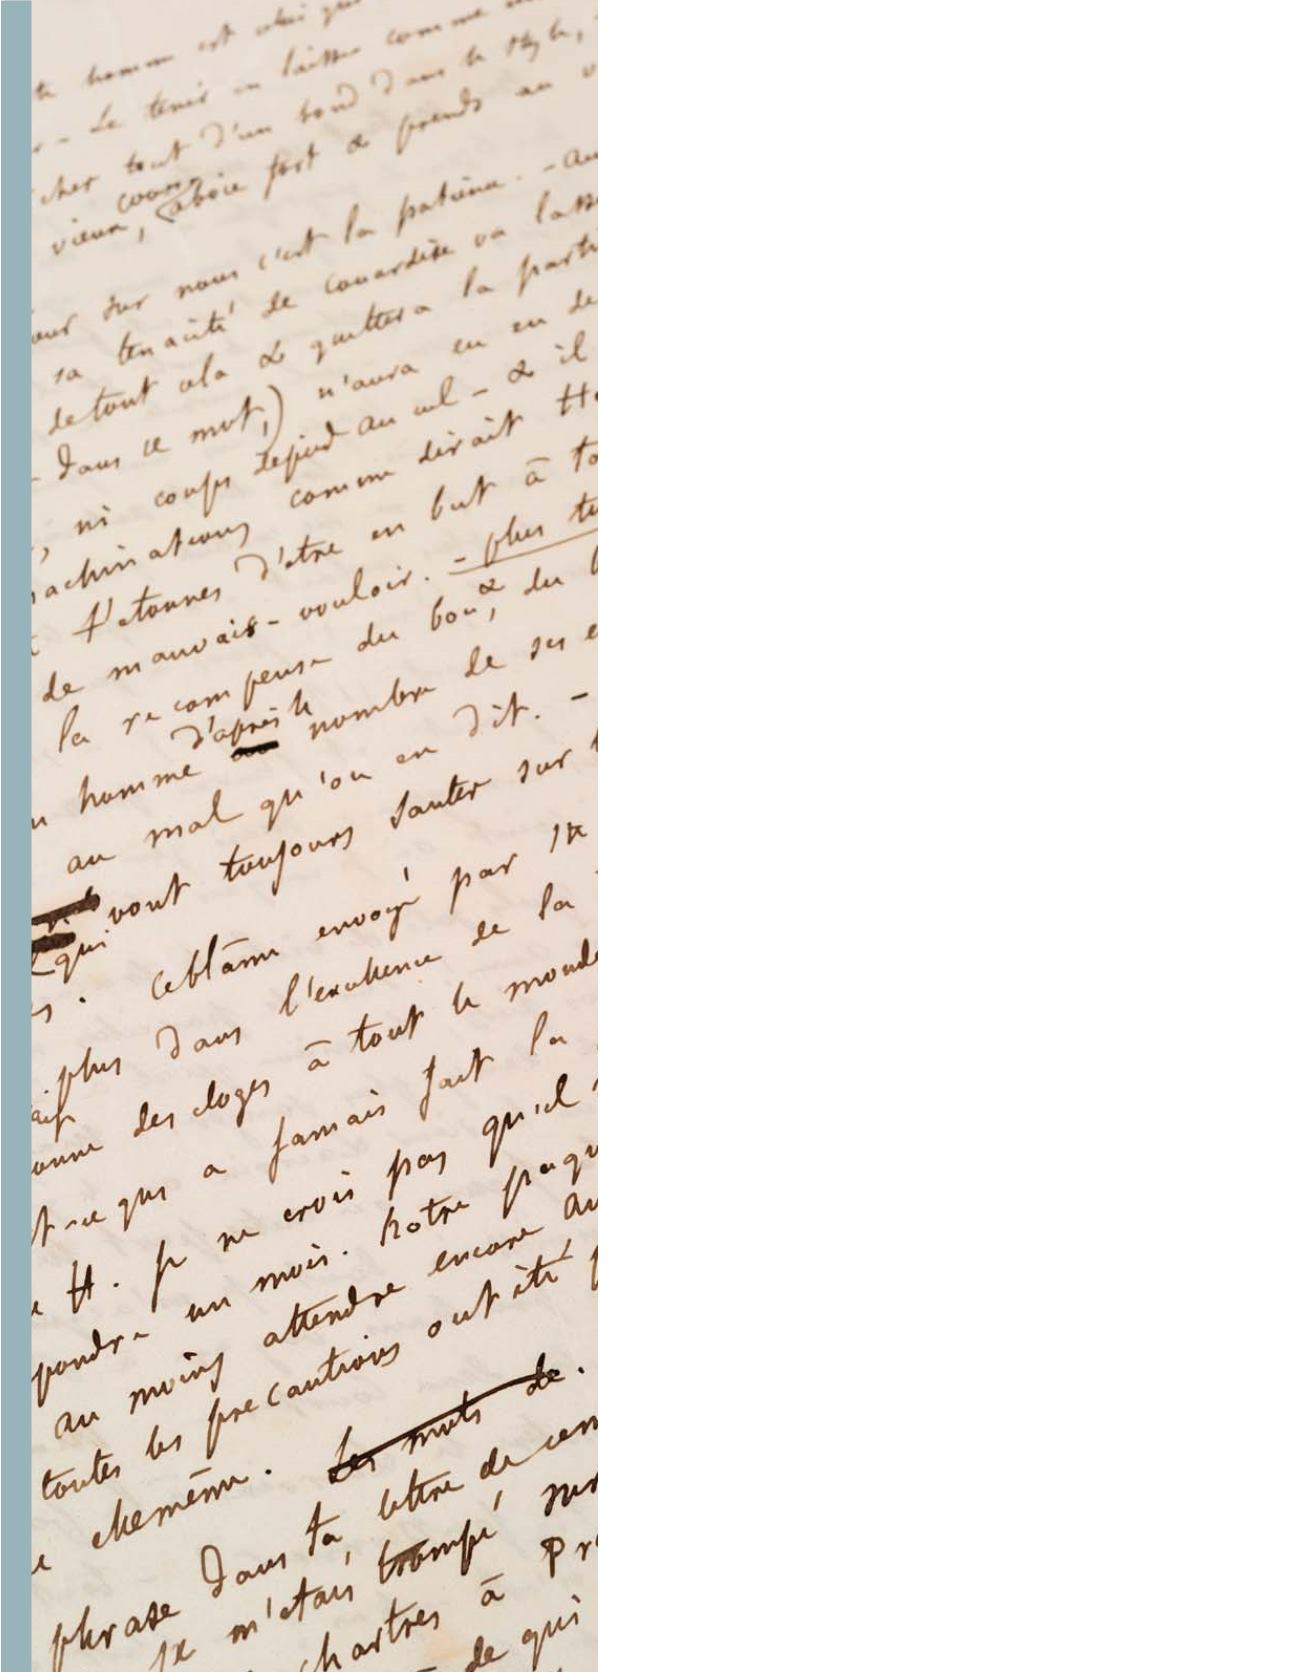 homme est celui qui
- Le tenir en laisse comme
cher tout d'un bond dans le style,
vieux, coeur aboie fort & prends au
sur nous c'est la patience. - au
sa tenacité de couardise va lass
de tout cela & quittera la parti
- dans ce mot,) n'aura eu en de
, ni coups de pied au cul - & il
achinations comme dirait H
t'etonnes d'etre en but à to
de mauvais-vouloir. - plus tu
la recompense du bon, & du b
homme d'après le nombre de ses e
au mal qu'on en dit. -
qui vont toujours sauter sur
. Ce blâme envoyé par
plus dans l'excellence de la
onne des eloges à tout le monde
t-ce qui a jamais fait la
H. Je ne crois pas qu'il
pondre un mois. Notre paqu
au moins attendre encore au
toutes les precautions ont été p
elle même. Les mots de.
phrase dans ta lettre de cem
Je m'etais trompé, sur
chartres à Pr
de qui